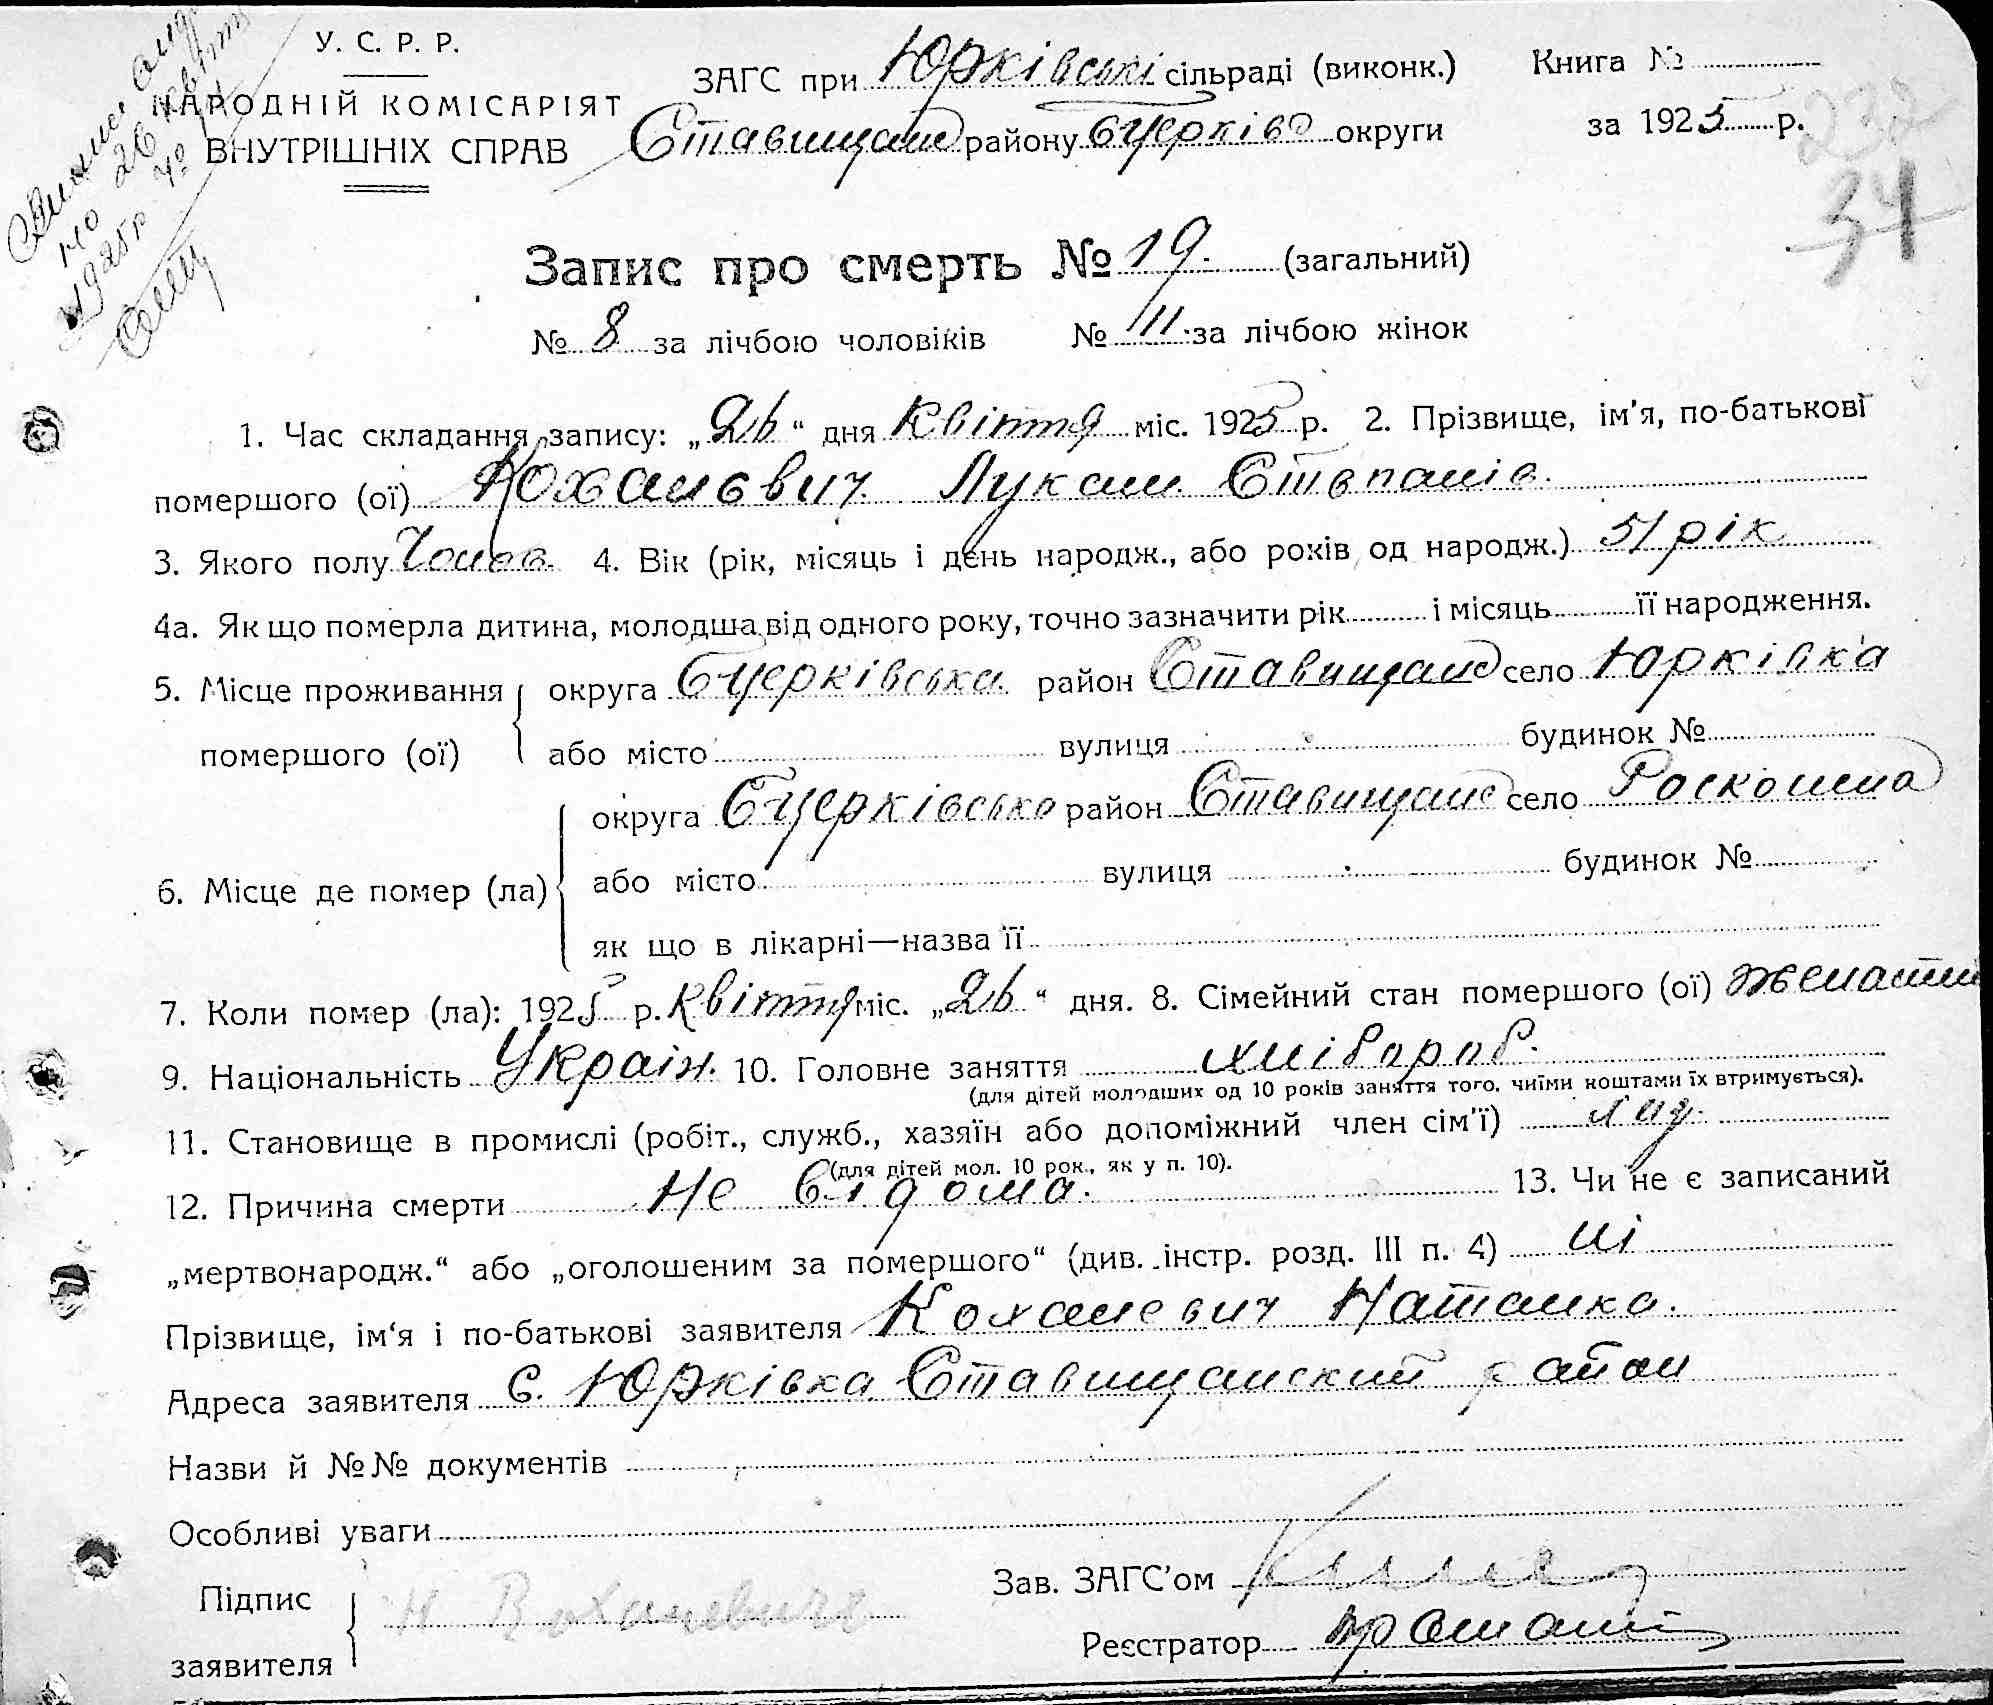 У. С. Р. Р.
НАРОДНІЙ КОМІСАРІЯТ
ВНУТРІШНІХ СПРАВ
по 26 квітня
1925 р
ЗАГС при Юрківські сільраді (виконк.) Книга №
Ставищан району БЦерків округи за 1925 р.
232
34
Запис про смерть № 19. (загальний)
№ 8 за лічбою чоловіків № 11 за лічбою жінок
1. Час складання запису: „26“ дня Квітня міс. 1925 р. 2. Прізвище, ім'я, по-батькові
помершого (ої) Коханевич Лукаш Степанів.
3. Якого полу Чолов. 4. Вік (рік, місяць і день народж., або років од народж.) 51 рік
4а. Як що померла дитина, молодша від одного року, точно зазначити рік і місяць її народження.
5. Місце проживання округа БЦерківська район Ставищанс село Юрківка
помершого (ої) або місто вулиця будинок №
округа БЦерківська район Ставищанс село Роскошна
6. Місце де помер (ла) або місто вулиця будинок №
як що в лікарні—назва її
7. Коли помер (ла): 1925 р. Квітня міс. „26“ дня. 8. Сімейний стан помершого (ої) женати
9. Національність Україн. 10. Головне заняття хлібороб.
(для дітей молодших од 10 років заняття того, чиїми коштами їх втримується).
11. Становище в промислі (робіт., служб., хазяїн або допоміжний член сім'ї)
(для дітей мол. 10 рок., як у п. 10).
12. Причина смерти Не відома. 13. Чи не є записаний
„мертвонародж.“ або „оголошеним за помершого“ (див. інстр. розд. III п. 4) ні
Прізвище, ім'я і по-батькові заявителя Коханевич Наталка.
Адреса заявителя с. Юрківка Ставищанский район
Назви й №№ документів
Особливі уваги
Підпис
заявителя Н Коханевичь
Зав. ЗАГС'ом
Реєстратор